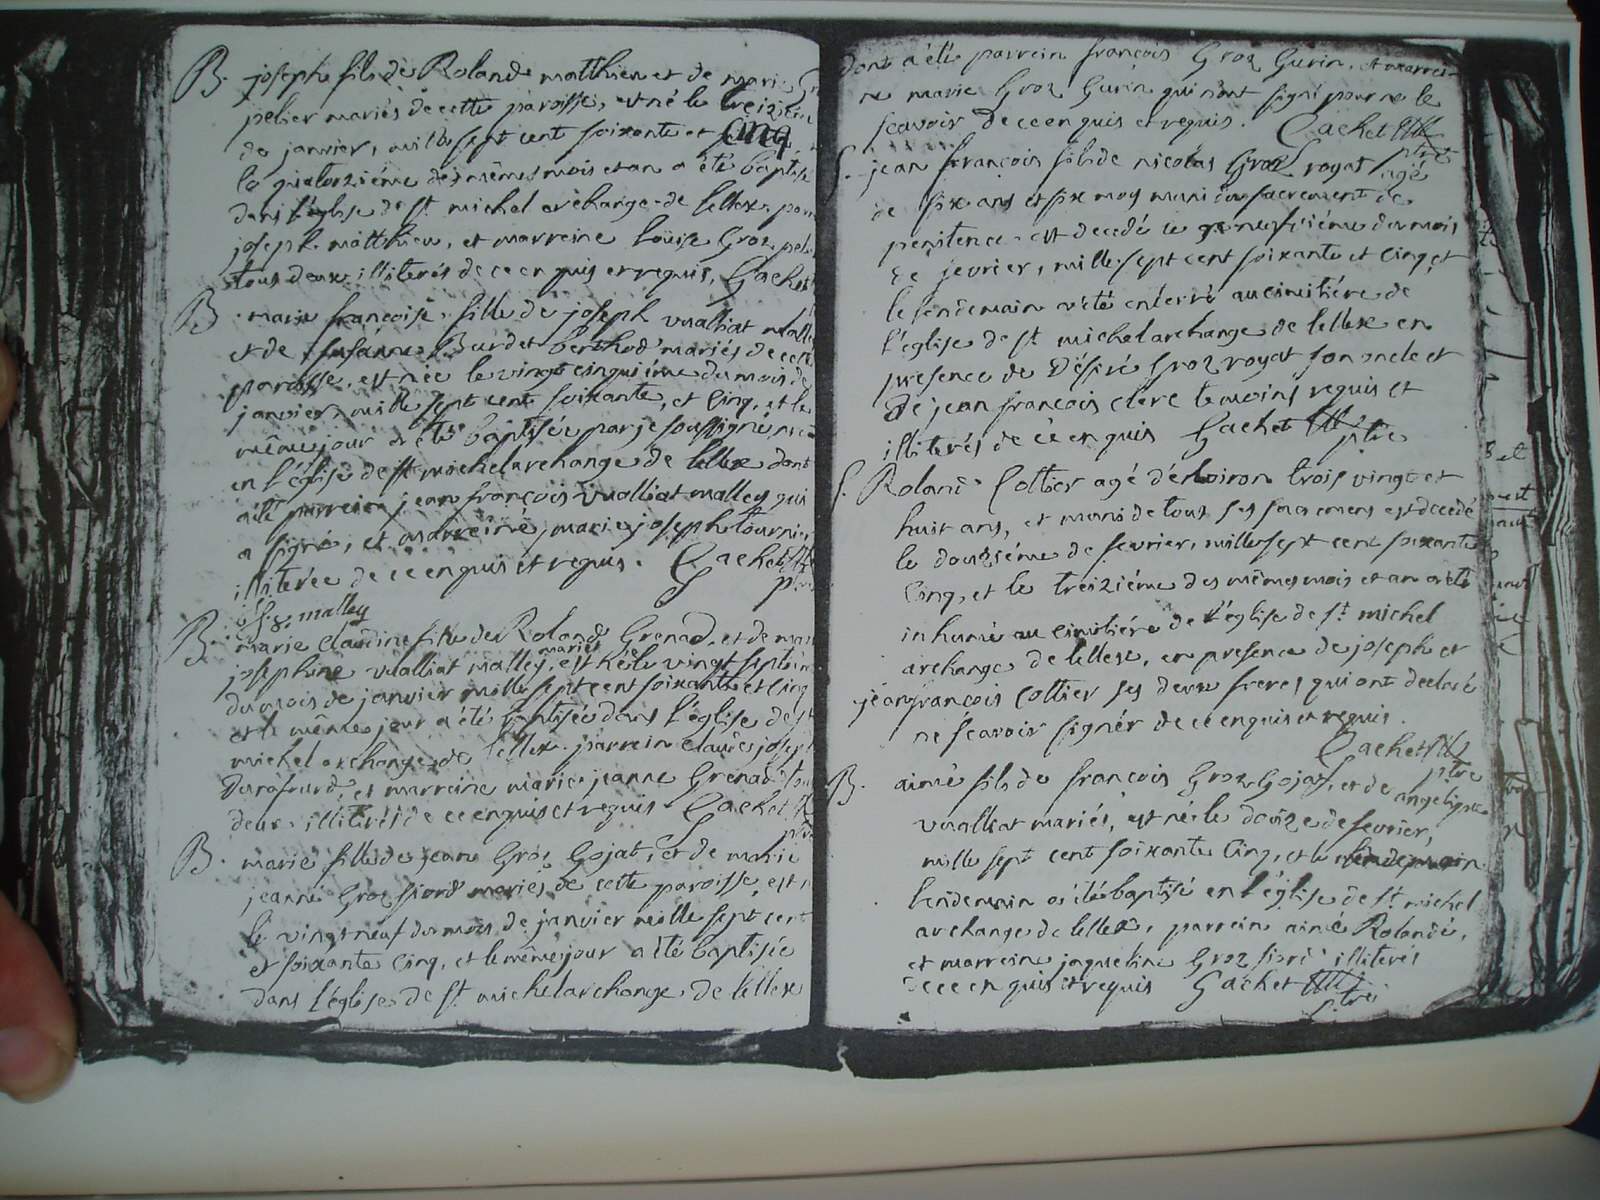 B. joseph fils de Roland matthieu et de marie
pelier mariés de cette paroisse, est né le treizième
de janvier, mille sept cent soixante et cinq
le quatorzième des mêmes mois et an a été baptisé
dans l'église de st. michel archange de lellex,
joseph matthieu, et marreine Loüise Groz
tous deux illiterés de ce enquis et requis, Gachet
B. marie françoise fille de joseph vualliat
et de susanne Burdet berthod mariés de cette
paroisse, est née le vingt cinquième du mois de
janvier, mille sept cent soixante, et Cinq, et le
même jour a été baptisée par je soussigné
en l'église de st michel archange de lellex dont
a été parrein jean françois vualliat malley qui
a signé, et marreine marie joseph tourni
illiterée de ce enquis et requis. Gachet
malley
B. marie claudine fille de Roland Grenad, et de
josephine vualliat malley mariés, est née le vingt sept
du mois de janvier mille sept cent soixante et Cinq
et le même jour a été baptisée dans l'église de st
michel archange de lellex parrein claude joseph
Durafourd, et marreine marie jeanne Grenad
deux illiterés de ce enquis et requis Gachet
B. marie fille de jean Groz Gojat, et de marie
jeanne Groz fiord mariés de cette paroisse, est
le vingt neuf du mois de janvier mille sept cent
et soixante Cinq, et le même jour a été baptisée
dans l'église de st michel archange de lellex
dont a été parrein françois Groz Gurin, et marrei
ne marie Groz Gurin qui n'ont signé pour ne le
scavoir de ce enquis et requis. Gachet
ptre
S. jean françois fils de nicolas Groz royat agé
de six ans et six moy muni du sacrement de
penitence est decedé le neufvième du mois
de fevrier, mille sept cent soixante et Cinq, et
le lendemain a été enterré au cimitière de
l'eglise de st michel archange de lellex en
presence de Désiré Groz royat son oncle et
de jean françois clerc temoins requis et
illiterés de ce enquis Gachet
ptre
S. Roland Cottier agé d'environ trois vingt et
huit ans, et muni de tous ses sacremens est decedé
le douzième de fevrier, mille sept cent soixante
Cinq, et le treizième des mêmes mois et an a été
inhumé au cimitière de l'église de st michel
archange de lellex, en presence de joseph et
jean françois Cottier ses deux freres qui ont declaré
ne scavoir signér de ce enquis et requis.
Gachet
ptre
B. aimé fils de françois Groz Gojat, et de angelique
vualliat mariés, est né le douze de fevrier,
mille sept cent soixante Cinq, et le
lendemain a été baptisé en l'église de st michel
archange de lellex, parrein aimé Rolandé,
et marrein jaqueline Groz fiord illiterés
de ce enquis et requis Gachet
ptre